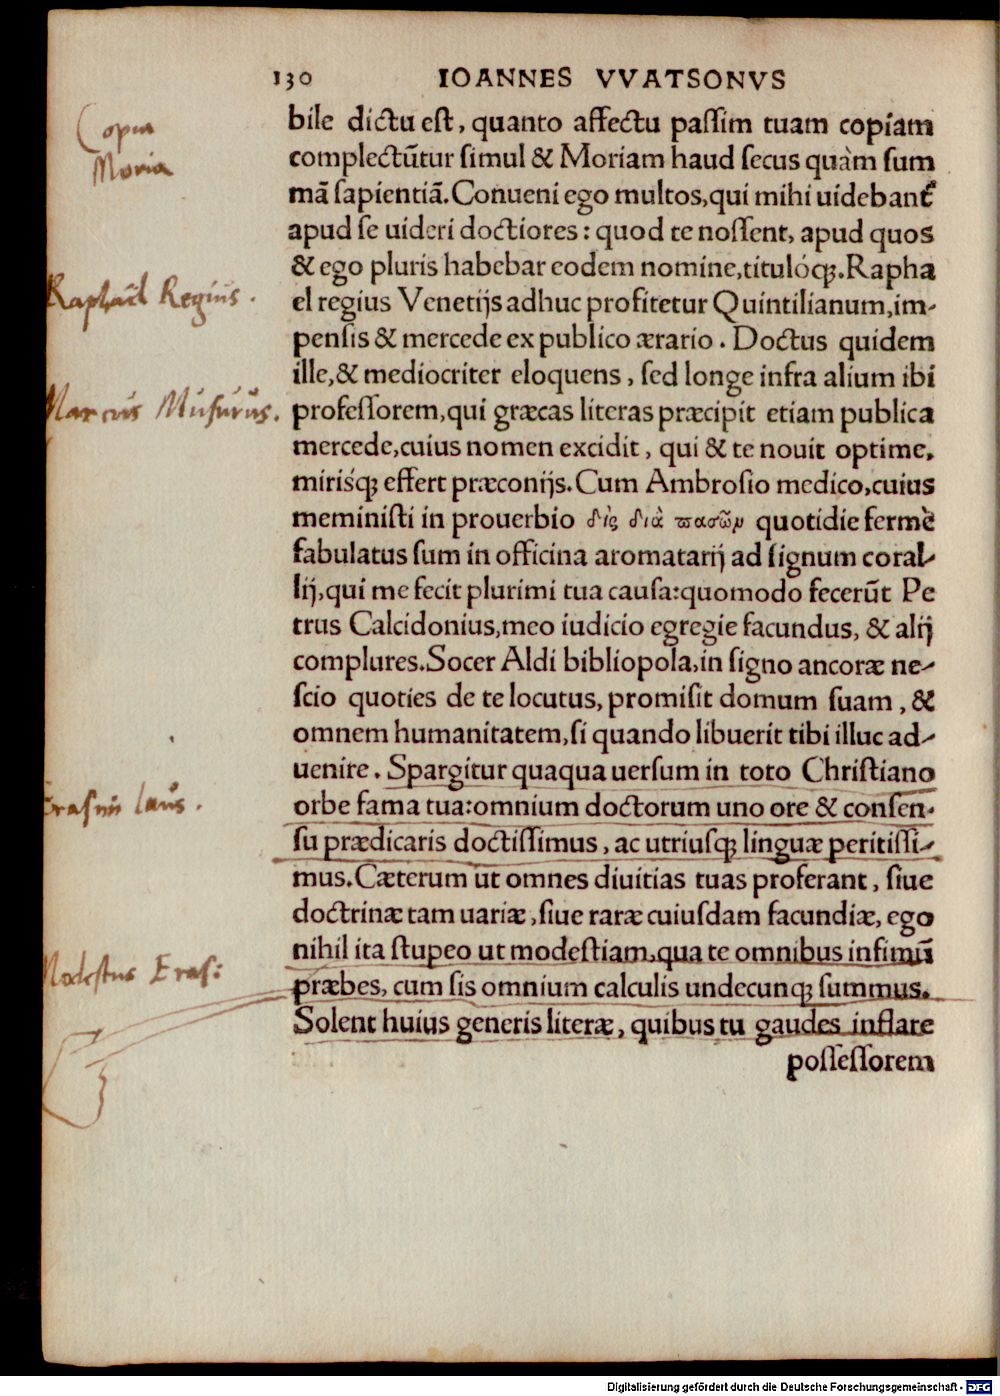 130 IOANNES VVATSONVS
bile dictu est, quanto affectu passim tuam copiam
complectūtur simul & Moriam haud secus quàm sum
mā sapientiā. Conueni ego multos, qui mihi uidebant᷑
apud se uideri doctiores: quod te nossent, apud quos
& ego pluris habebar eodem nomine, titulóq;. Rapha
el regius Venetijs adhuc profitetur Quintilianum, im-
pensis & mercede ex publico ærario. Doctus quidem
ille, & mediocriter eloquens, sed longe infra alium ibi
professorem, qui græcas literas præcipit etiam publica
mercede, cuius nomen excidit, qui & te nouit optime,
mirisq́; effert præconijs. Cum Ambrosio medico, cuius
meministi in prouerbio δὶς διὰ πασῶμ quotidie fermè
fabulatus sum in officina aromatarij ad signum coral-
lij, qui me fecit plurimi tua causa: quomodo fecerūt Pe
trus Calcidonius, meo iudicio egregie facundus, & alij
complures. Socer Aldi bibliopola, in signo ancoræ ne-
scio quoties de te locutus, promisit domum suam, &
omnem humanitatem, si quando libuerit tibi illuc ad-
uenire. Spargitur quaqua uersum in toto Christiano
orbe fama tua: omnium doctorum uno ore & consen-
su prædicaris doctissimus, ac utriusq; linguæ peritissi-
mus. Cæterum ut omnes diuitias tuas proferant, siue
doctrinæ tam uariæ, siue raræ cuiusdam facundiæ, ego
nihil ita stupeo ut modestiam, qua te omnibus infimū
præbes, cum sis omnium calculis undecunq; summus.
Solent huius generis literæ, quibus tu gaudes inflare
possessorem
Copia
Moria
Raphael Regius.
Marcus Musurus.
Erasmi laus.
Modestus Eras:
Digitalisierung gefördert durch die Deutsche Forschungsgemeinschaft - DFG